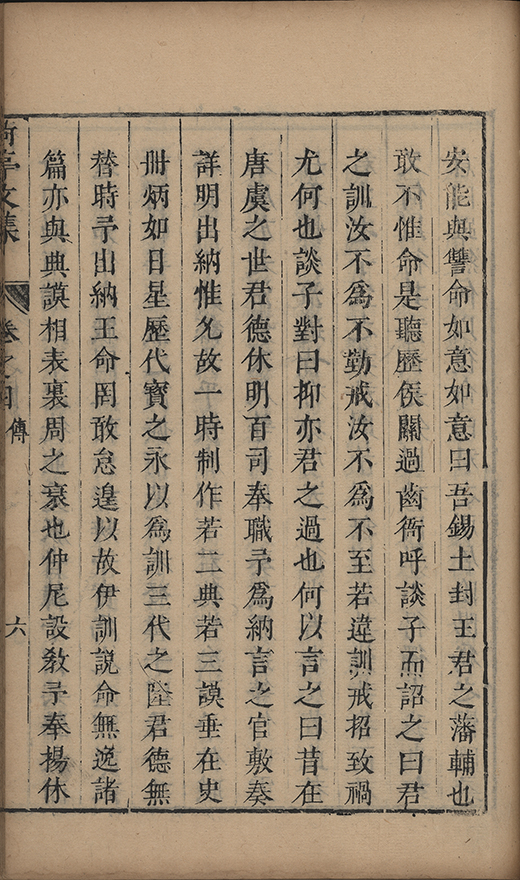 安能與讐命如意如意曰吾錫土封王君之藩輔也
敢不惟命是聽歷侯關過齒衙呼談子而詔之曰君
之訓汝不爲不勤戒汝不爲不至若違訓戒招致禍
尤何也談子對曰抑亦君之過也何以言之曰昔在
唐虞之世君德休明百司奉職予爲納言之官敷奏
詳明出納惟允故一時制作若二典若三謨垂在史
冊炳如日星歷代寶之永以爲訓三代之隆君德無
朁時予出納王命罔敢怠遑以故伊訓説命無逸諸
篇亦與典謨相表裏周之衰也仲尼設教予奉揚休
亭文集
卷之四
傳
六